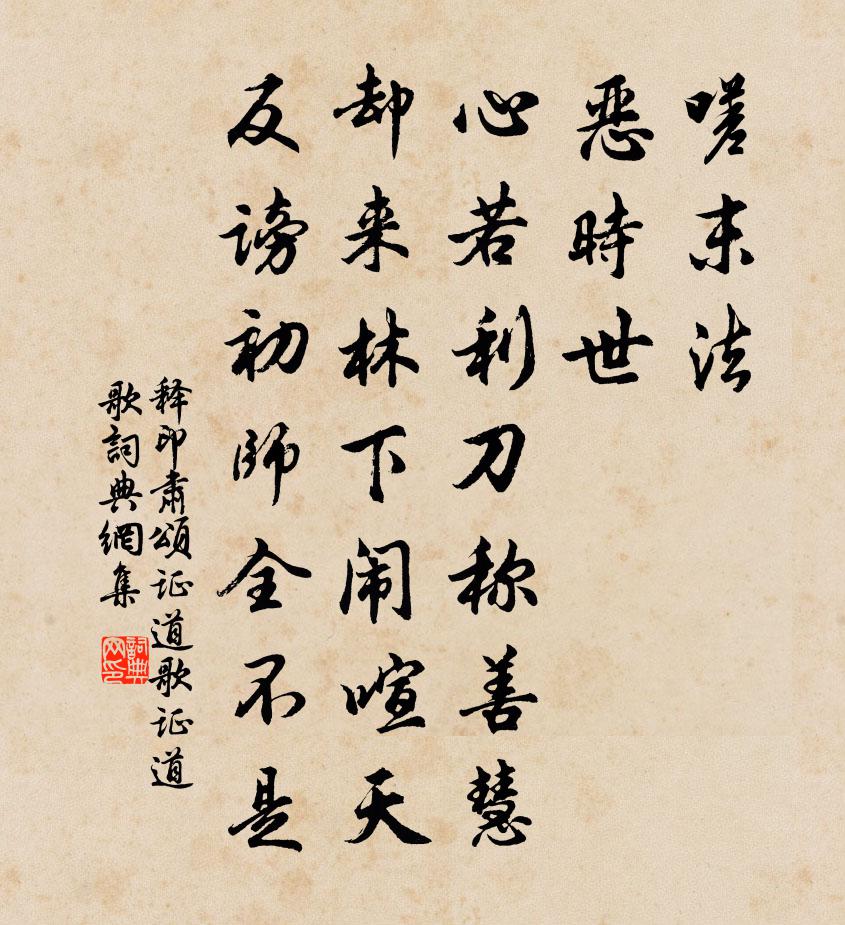 嗟末法
惡時世
心若利刀称善慧
却来林下闹喧天
反謗初師全不是
释印肃頌证道歌证道
歌詞典網集
詞典
网印